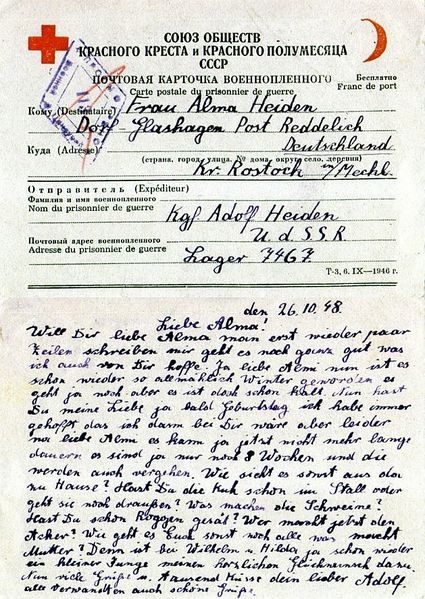 СОЮЗ ОБЩЕСТВ
КРАСНОГО КРЕСТА и КРАСНОГО ПОЛУМЕСЯЦА
СССР
ПОЧТОВАЯ КАРТОЧКА ВОЕННОПЛЕННОГО
Бесплатно
Carte postale du prisonnier de guerre
Franc de port
Кому (Destinataire) Frau Alma Heiden
Dorf-Glashagen Post Reddelich
Куда (Adresse) Deutschland
(страна, город, улица, № дома, округ, село, деревня)
Kr. Rostoch i/Mechl.
Отправитель (Expéditeur)
Фамилия и имя военнопленного
Nom du prisonnier de guerre
Kgf. Adolf Heiden
Почтовый адрес военнопленного
U.d.S.S.R.
Adresse du prisonnier de guerre
Lager 7467.
Т-3, 6. IX—1946 г.
den 26.10.48.
Liebe Alma!
Will Dir liebe Alma man erst wieder paar
Zeilen schreiben mir geht es noch ganz gut was
ich auch von Dir hoffe. Ja liebe Almi nun ist es
schon wieder so allmählich Winter geworden es
geht ja noch aber es ist doch schon kalt. Nun hast
Du meine Liebe ja bald Geburtstag ich habe immer
gehofft das ich dann bei Dir wäre aber leider
liebe Almi es kann ja jetzt nicht mehr lange
dauern es sind ja nur noch 8 Wochen und die
werden auch vergehen. Wie sieht es sonst aus da
zu Hause? Hast Du die Kuh schon im Stall oder
geht sie noch draußen? Was machen die Schweine?
Hast Du schon Roggen gesät? Wer macht jetzt den
Acker? Wie geht es Euch sonst noch alle was macht
Mutter? Denn ist bei Wilhelm u. Hilda ja schon wieder
ein kleiner Junge meinen herzlichen Glückwunsch dazu.
Nun viele Grüße u. tausend Küsse dein lieber Adolf.
alle Verwandten auch schöne Grüße.